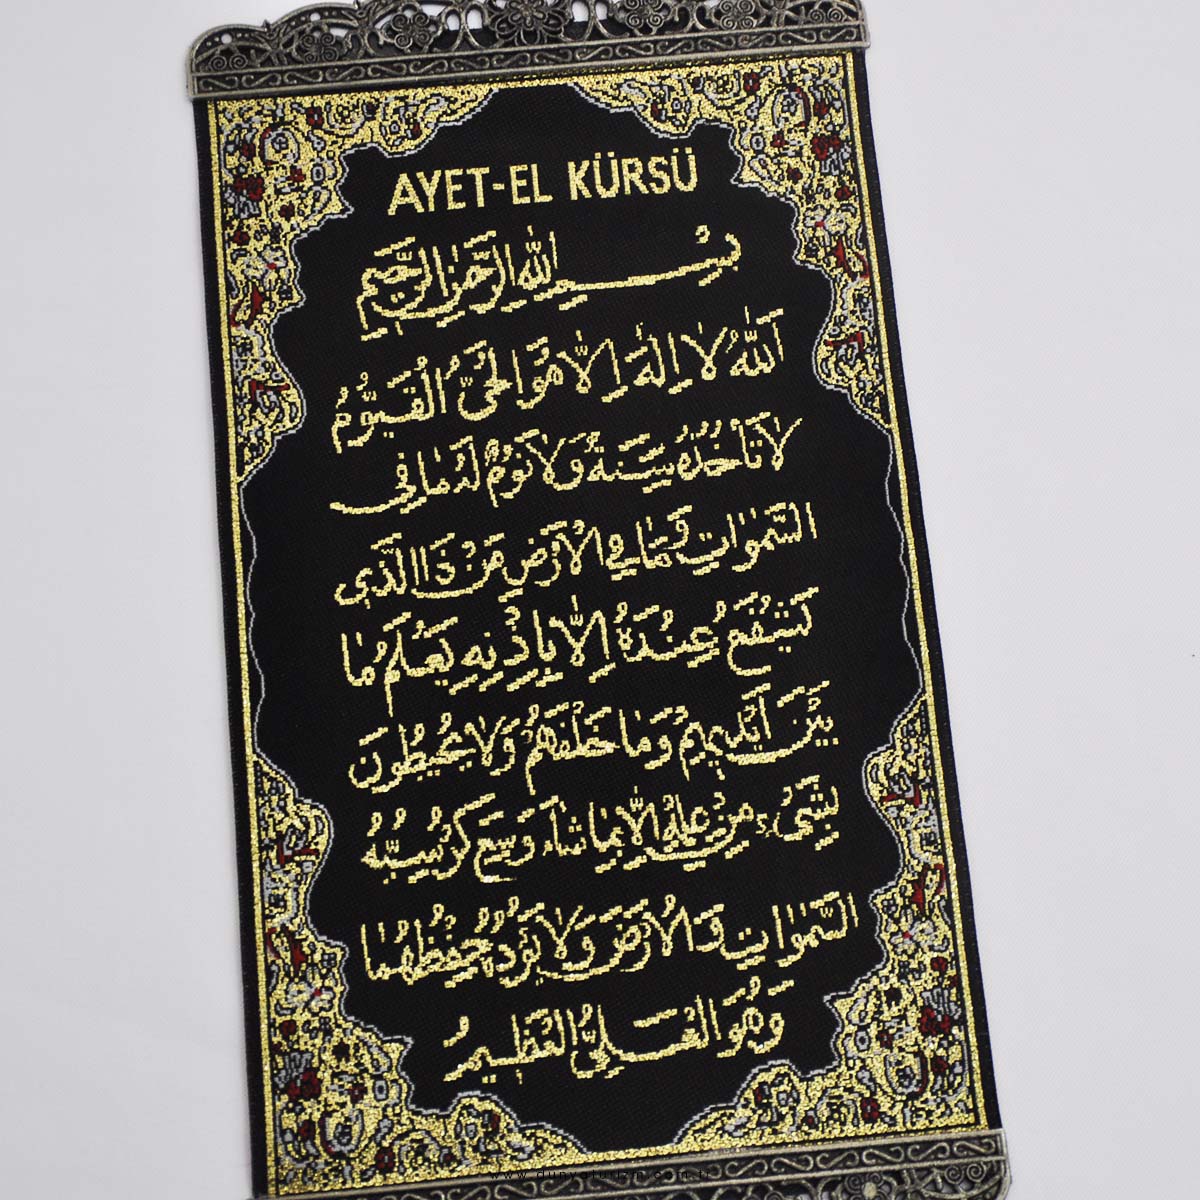 AYET-EL KÜRSÜ
بِسْــــــمِ اللّٰهِ الرَّحْمٰنِ الرَّحِيمِ
اَللّٰهُ لَا اِلٰهَ اِلَّا هُوَ الْحَيُّ الْقَيُّومُ
لَا تَأْخُذُهُ سِنَةٌ وَلَا نَوْمٌ لَهُ مَا فِي
السَّمٰوَاتِ وَمَا فِي الْاَرْضِ مَنْ ذَا الَّذِي
يَشْفَعُ عِنْدَهُ اِلَّا بِاِذْنِهِ يَعْلَمُ مَا
بَيْنَ اَيْدِيهِمْ وَمَا خَلْفَهُمْ وَلَا يُحِيطُونَ
بِشَيْءٍ مِنْ عِلْمِهِ اِلَّا بِمَا شَاءَ وَسِعَ كُرْسِيُّهُ
السَّمٰوَاتِ وَالْاَرْضَ وَلَا يَؤُدُهُ حِفْظُهُمَا
وَهُوَ الْعَلِيُّ الْعَظِيمُ
www.dunyaturizm.com.tr